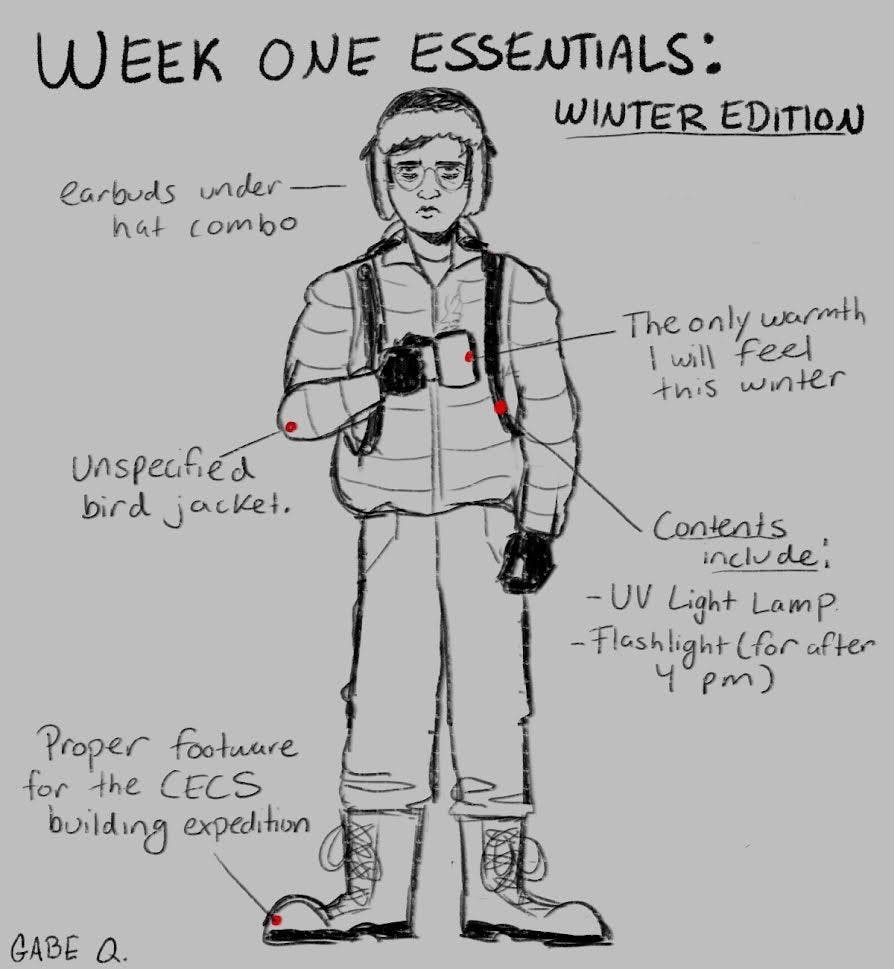 WEEK ONE ESSENTIALS:
WINTER EDITION
earbuds under
hat combo
The only warmth
I will feel
this winter
Unspecified
bird jacket.
Contents
include:
- UV Light Lamp
- Flashlight (for after
4 pm)
Proper footware
for the CECS
building expedition
GABE Q.